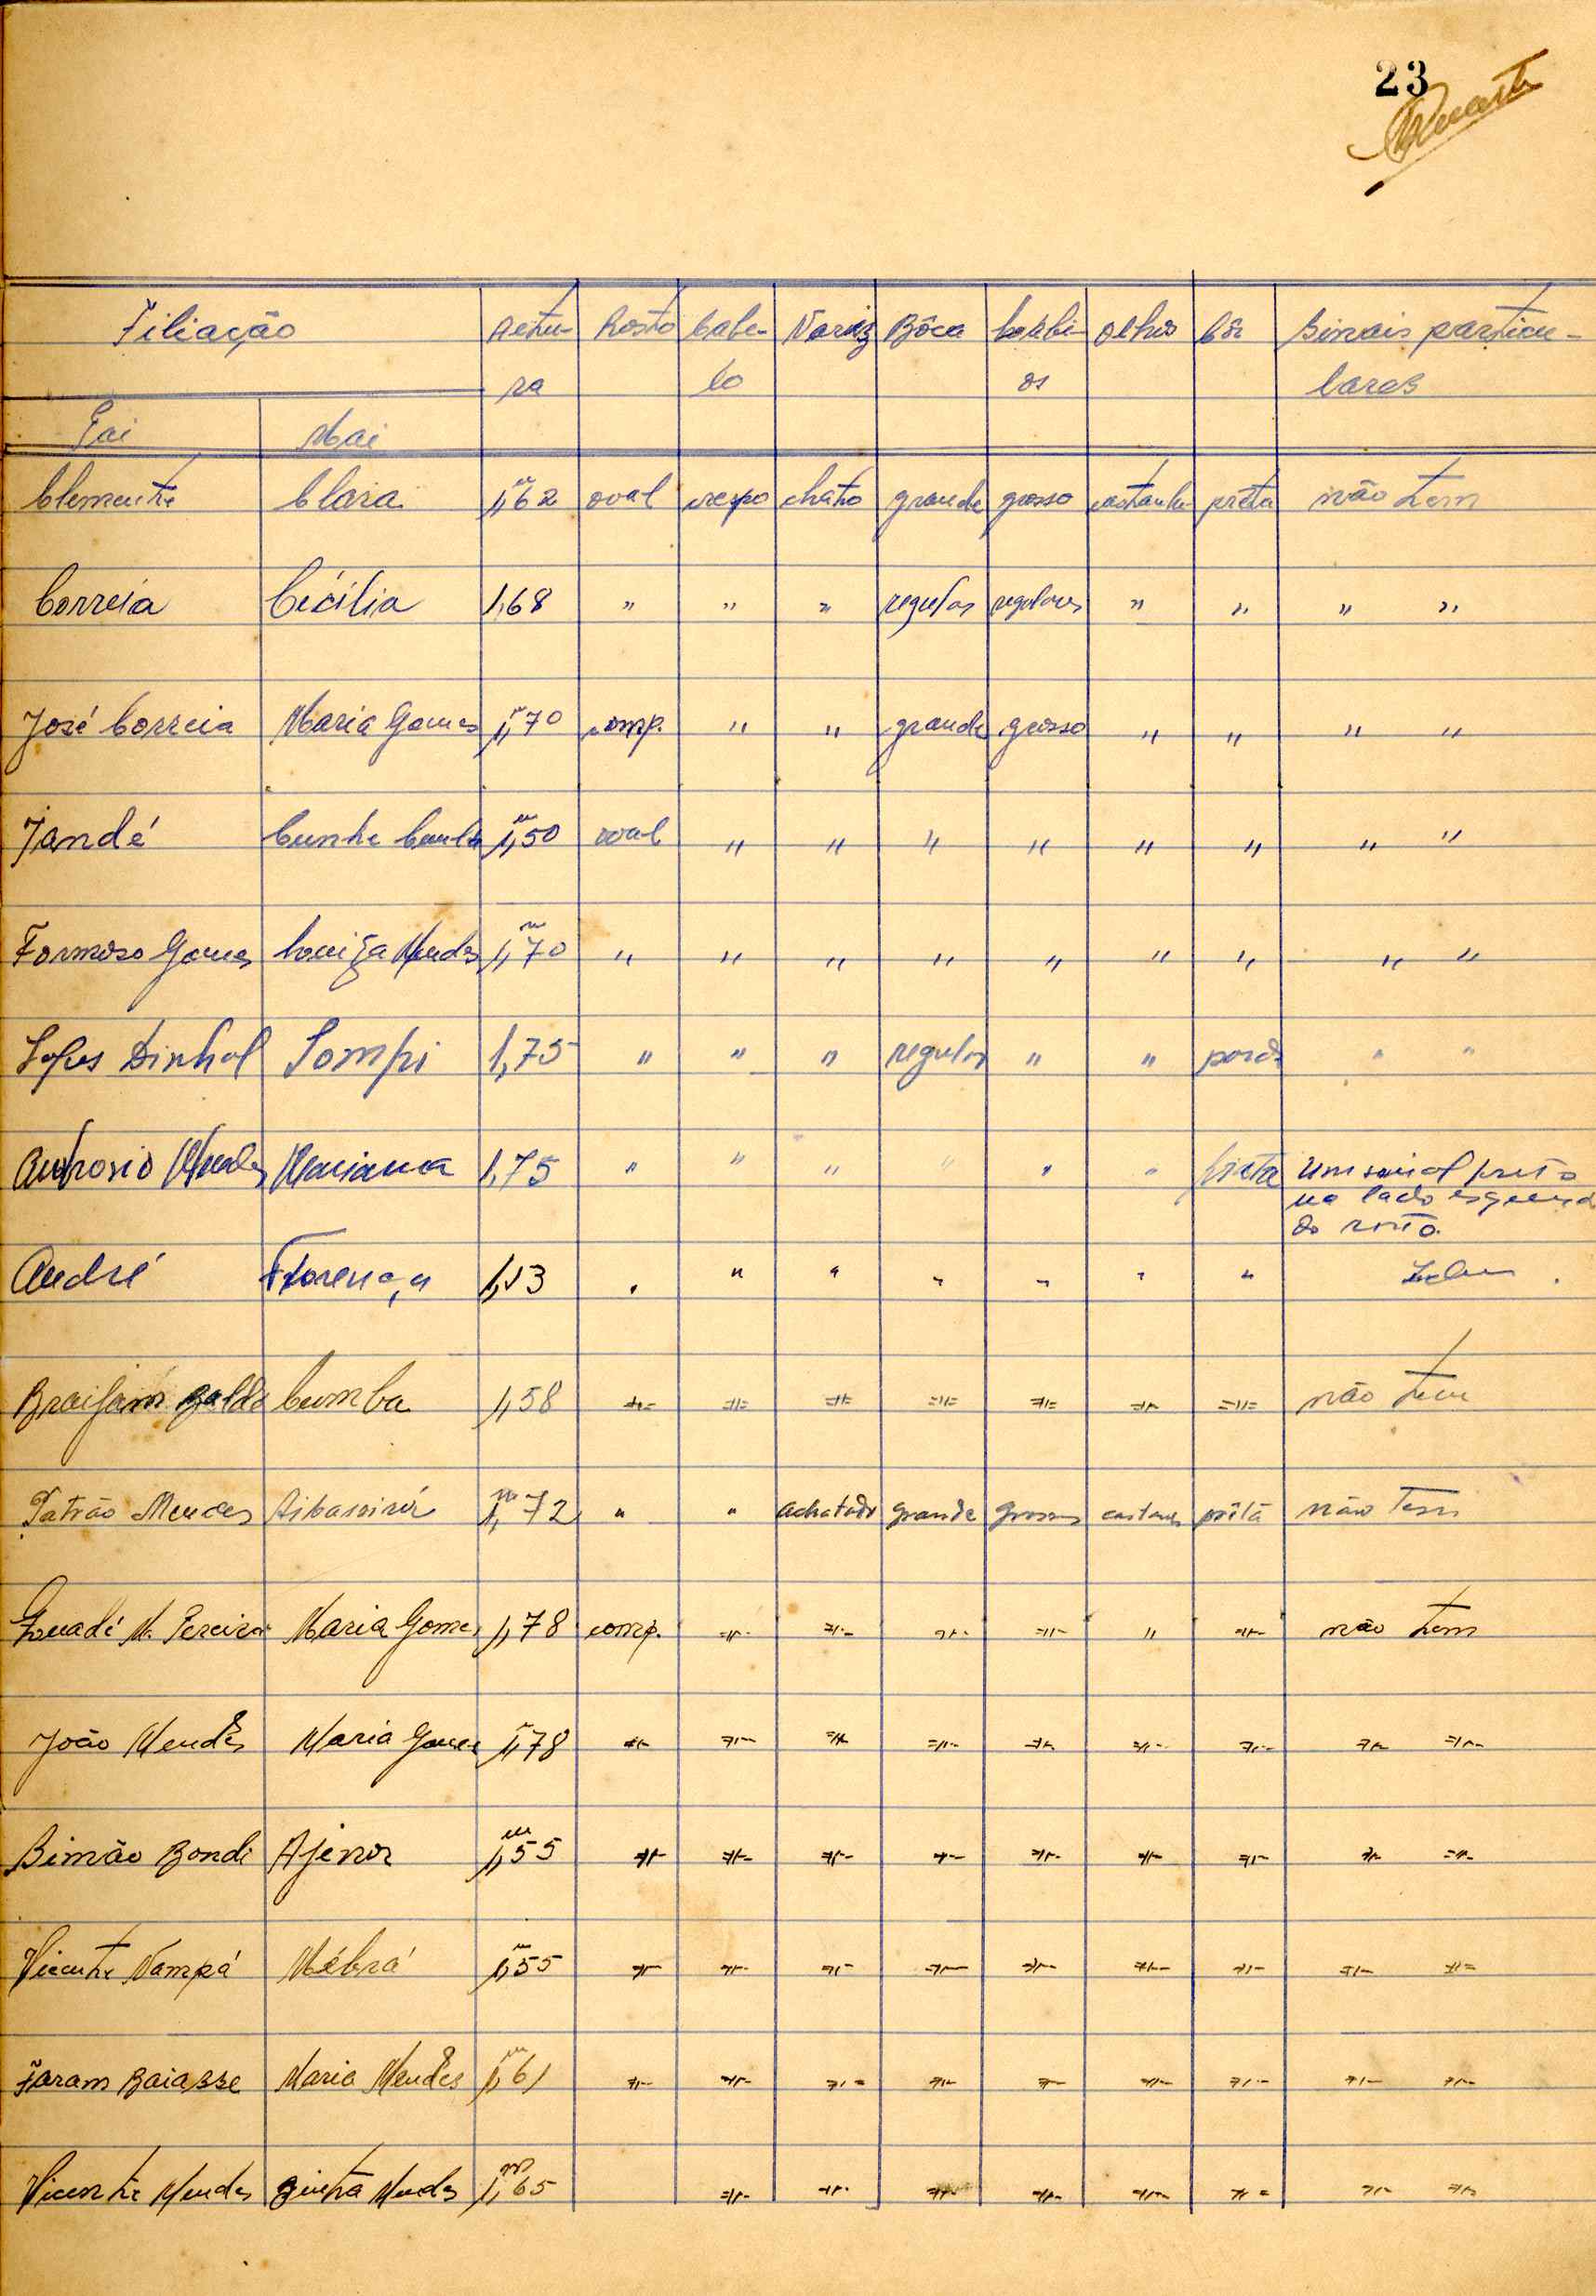 23
Filiação Altu- Rosto Cabe- Nariz Bôca Lábi- Olhos Côr Sinais particu-
ra lo os lares
Pai Mai
Clemente Clara 1,m62 oval crespo chato grande grosso castanho prêta não tem
Correia Cecília 1,68 " " " regular regulares " " " "
José Correia Maria Gomes 1,m70 comp. " " grande grosso " " " "
Jandé Cunhe 1,m50 oval " " " " " " " "
Formoso Gomes Louiça Mendes 1,m70 " " " " " " " " "
Lopes Dinhal Sompi 1,75 " " " regular " " parda " "
Ambrosio Mendes Mariana 1,75 " " " " " " preta um sinal preto
no lado esquerdo
do rosto.
André Florença 1,53 " " " " " " "
Braifam Baldé Cumba 1,58 =||= =||= =||= =||= =||= =||= =||= não tem
Patrão Mendes 1,m72 " " achatado grande grosso castanho prêta não tem
M. Pereira Maria Gomes 1,78 comp. =||= =||= =||= =||= " =||= não tem
João Mendes Maria Gomes 1,m78 =||= =||= =||= =||= =||= =||= =||= =||= =||=
Simão Bondi Ajenor 1,m55 =||= =||= =||= =||= =||= =||= =||= =||= =||=
Vicente Nampá Mébrá 1,m55 =||= =||= =||= =||= =||= =||= =||= =||= =||=
Faram Baiasse Maria Mendes 1,m61 =||= =||= =||= =||= =||= =||= =||= =||= =||=
Vicente Mendes Quinta Mendes 1,m65 =||= =||= =||= =||= =||= =||= =||= =||=